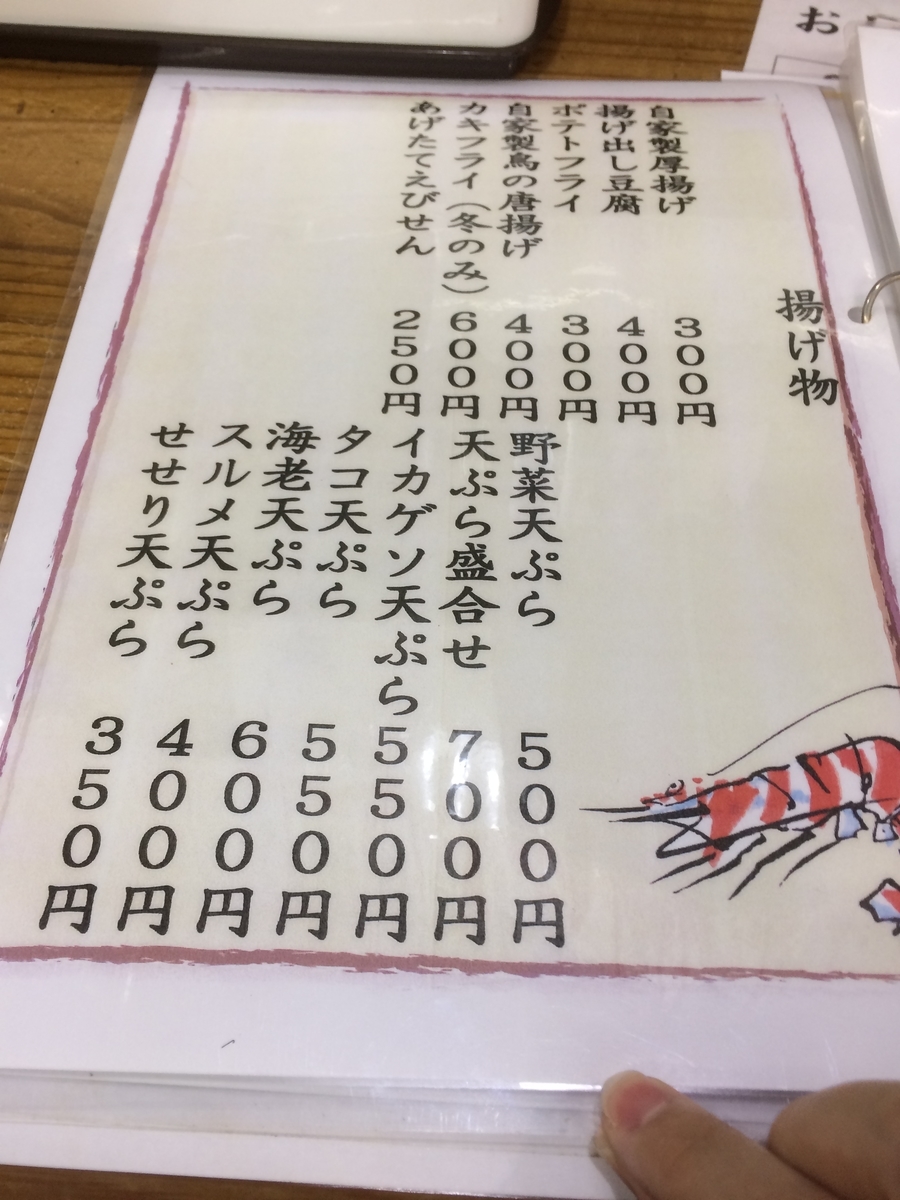 揚げ物
自家製厚揚げ 300円
揚げ出し豆腐 400円
ポテトフライ 300円
自家製鳥の唐揚げ 400円
カキフライ（冬のみ） 600円
あげたてえびせん 250円
野菜天ぷら 500円
天ぷら盛合せ 700円
イカゲソ天ぷら 550円
タコ天ぷら 550円
海老天ぷら 600円
スルメ天ぷら 400円
せせり天ぷら 350円
お